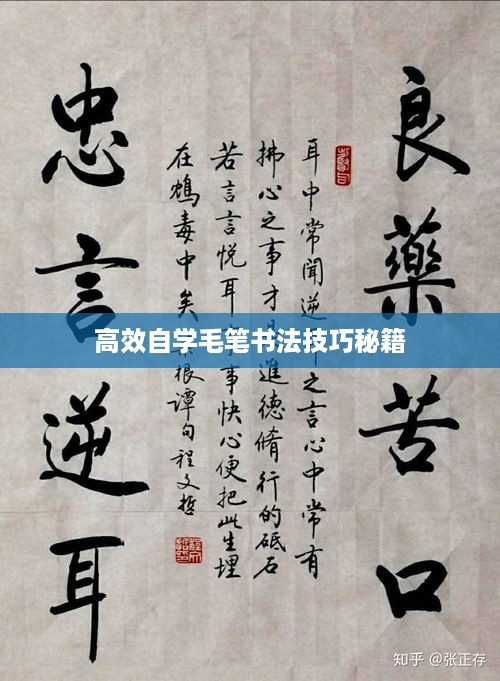 良藥苦口
耳中常聞逆之言心中常有
拂心之事才進德脩行的砥石
若言言悅耳事快心便把此生埋
在鴆毒中矣根譚句程文哲
忠言逆耳
高效自学毛笔书法技巧秘籍
知乎 @张正存